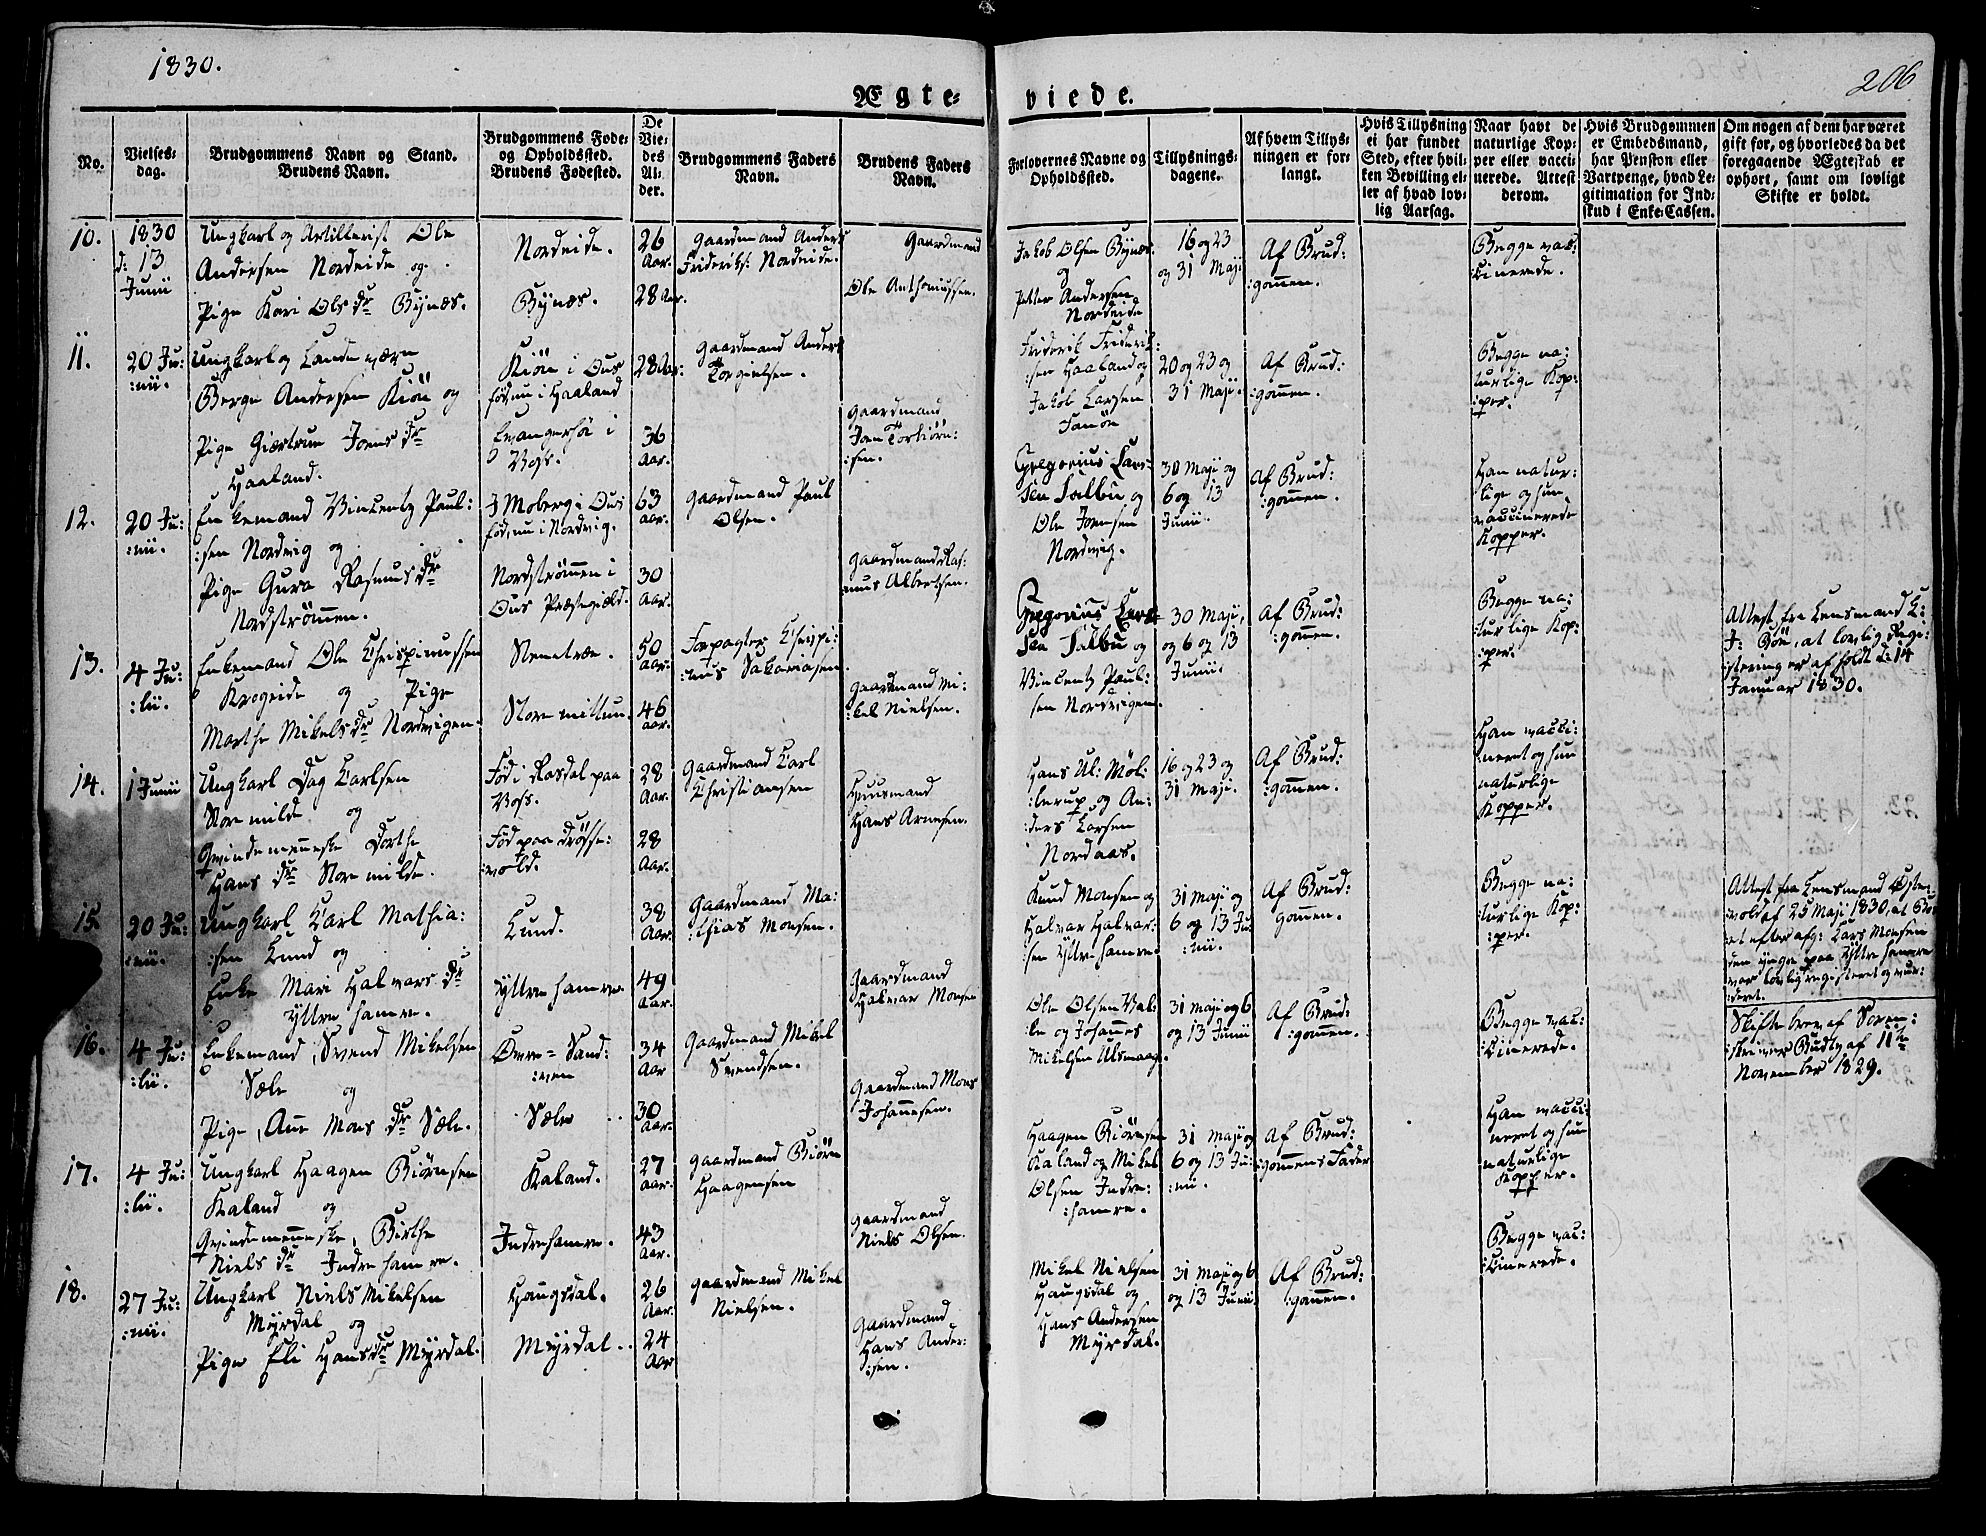 1830.
206
Ægte-
viede.
No.
Vielses-
dag.
Brudgommens Navn og Stand.
Brudens Navn.
Brudgommens Føde-
og Opholdssted.
Brudens Fødested.
De
Vie-
des
Al-
der.
Brudgommens Faders
Navn.
Brudens Faders
Navn.
Forlovernes Navne og
Opholdssted.
Tillysnings-
dagene.
Af hvem Tillys-
ningen er for-
langt.
Hvis Tillysning
ei har fundet
Sted, efter hvil-
ken Bevilling el-
ler af hvad lov-
lig Aarsag.
Naar havt de
naturlige Kop-
per eller vacci-
nerede. Attest
derom.
Hvis Brudgommen
er Embedsmand,
har Pension eller
Vartpenge, hvad Le-
gitimation for Ind-
skud i Enke-Cassen.
Om nogen af dem har været
gift før, og hvorledes da det
foregaaende Ægteskab er
ophørt, samt om lovligt
Skifte er holdt.
10.
1830
d: 13
Junii
Ungkarl og Artillerist Ole
Andersen Nordeide og
Pige Kari Ols dr Bynæs.
Nordeide.
Bynæs.
26
Aar.
28 Aar.
Gaardmand Anders
Frideriks: Nordeide.
Gaardmand
Ole Anthoniussen.
Jakob Olsen Bynæs
og
Petter Andersen
Nordeide
16 og 23
og 31 Maji
Af Brud:
:gommen.
Begge vac:
:cinerede.
11.
20 Ju:
:nii.
Ungkarl og Landeværn
Berge Andersen Kiön og
Pige Giertrue Joens dr
Haaland.
Kiön i Ous
fød, nu i Haaland
Evangerhöi i
Voss.
28 Aar:
36
Aar.
Gaardmand Anders
Torgielsen.
Gaardmand
Joen Torbiörn:
:sen.
Friderik Friderik:
:sen Haaland og
Jakob Larsen
Fanön
20 og 23 og
31 Maji.
Af Brud:
:gommen.
Begge na:
:turlige Kop:
:per.
12.
20 Ju:
:nii.
Enkemand Vincentz Paul:
:sen Nordvig og
Pige Gura Rasmus dr
Nordströmen.
I Moberg i Ous
fød, nu i Nordvig.
Nordströmmen i
Ous Præstegield.
63
Aar.
30
Aar.
Gaardmand Paul
Olsen.
Gaardmand Ras:
mus Albertsen.
Gregorius Lar:
sen Salbu og
Ole Joensen
Nordvig.
30 Maji og
6 og 13
Junii.
Af Brud:
:gommen.
Han natur:
:lige og hun
vaccinerede
Kopper.
13.
4 Ju:
:lii.
Enkemand Ole Chrispinussen
Krogeide og Pige
Marthe Mikels dr Nordvigen.
Nemetræe.
Store mittun.
50
Aar.
46
Aar.
Forpagter Chrispi:
:nus Sakariasen
Gaardmand Mi:
:kel Nielsen.
Gregorius Lar
sen Salbu og
Vincentz Paul:
sen Nordvigen.
30 Maji,
og 6 og 13
Junii.
Af Brud:
:gommen.
Begge na:
:turlige Kop:
:per.
Attest fra Lensmand
at lovlig Regi:
:stering er afholdt d: 14
Januar 1830.
14.
1 Junii
Ungkarl Dag Carlsen
Store milde og
Qvindemenneske Dorthe
Hans dr Store milde.
Fød i Rasdal paa
Voss.
Fød paa
:vold.
28
Aar.
28
Aar.
Gaardmand Carl
Christiansen
Huusmand
Hans Arnesen.
Hans Ul: Möl:
:lerup og An:
:ders Larsen
Nordaas.
16 og 23 og
31 Maji.
Af Brud:
:gommen.
Han vacci:
:neret og hun
naturlige
Kopper.
15.
20 Ju:
:nii.
Ungkarl Carl Mathia:
:sen Lund og
Enke Mari Halvars dr
Yttre hamre.
Lund.
Yttre hamre
38
Aar.
49
Aar.
Gaardmand Ma:
:thias Monsen.
Gaardmand
Halvar Monsen
Knud Monsen og
Halvar Halvar:
:sen Yttre hamre.
31 Maji og
6 og 13 Ju:
:nii.
Af Brud:
gommen.
Begge na:
:turlige Kop:
:per.
Attest fra Lensmand Østen:
:vold af 25 Maji 1830, at Bo:
:et efter afg: Lars Monsen
den yngre paa Yttre hamre
var lovlig registeret og vur:
:deret.
16.
4 Ju:
:lii.
Enkemand, Svend Mikelsen
Sæle og
Pige, Ane Mons dr Sæle.
Övre= Sand:
:ven
Sæle
34
Aar
30
Aar.
Gaardmand Mikel
Svendsen.
Gaardmand Mons
Johannesen.
Ole Olsen Val:
le og Johannes
Mikelsen Ulsmaag.
31 Maji og 6
og 13 Junii
Af Brud:
:gommen.
Begge vac:
:cinerede.
Skiftebrev af Soren:
:skriver Budtz af 11te
November 1829.
17.
4 Ju:
:lii.
Ungkarl Haagen Biörnsen
Kaland og
Qvindemenneske, Birthe
Niels dr Indre hamre.
Kaland.
Indrehamre.
27
Aar.
43
Aar.
Gaardmand Biörn
Haagensen
Gaardmand
Niels Olsen.
Haagen Biörnsen
Kaland og Mikel
Olsen Indre:
:hamre.
31 Maji og
6 og 13 Ju:
:nii.
Af Brud:
:gommens Fader
Han vacci:
neret og hun
naturlige
Kopper.
18.
27 Ju:
:nii.
Ungkarl Niels Mikelsen
Myrdal og
Pige Eli Hans dr Myrdal.
Haugsdal.
Myrdal.
26
Aar.
24
Aar
Gaardmand Mikel
Nielsen.
Gaardmand
Hans Ander:
:sen.
Mikel Nielsen
Haugsdal og
Hans Andersen
Myrdal.
31 Maji og 6
og 13 Junii.
Af Brud:
:gommen.
Begge vac:
:cinerede.